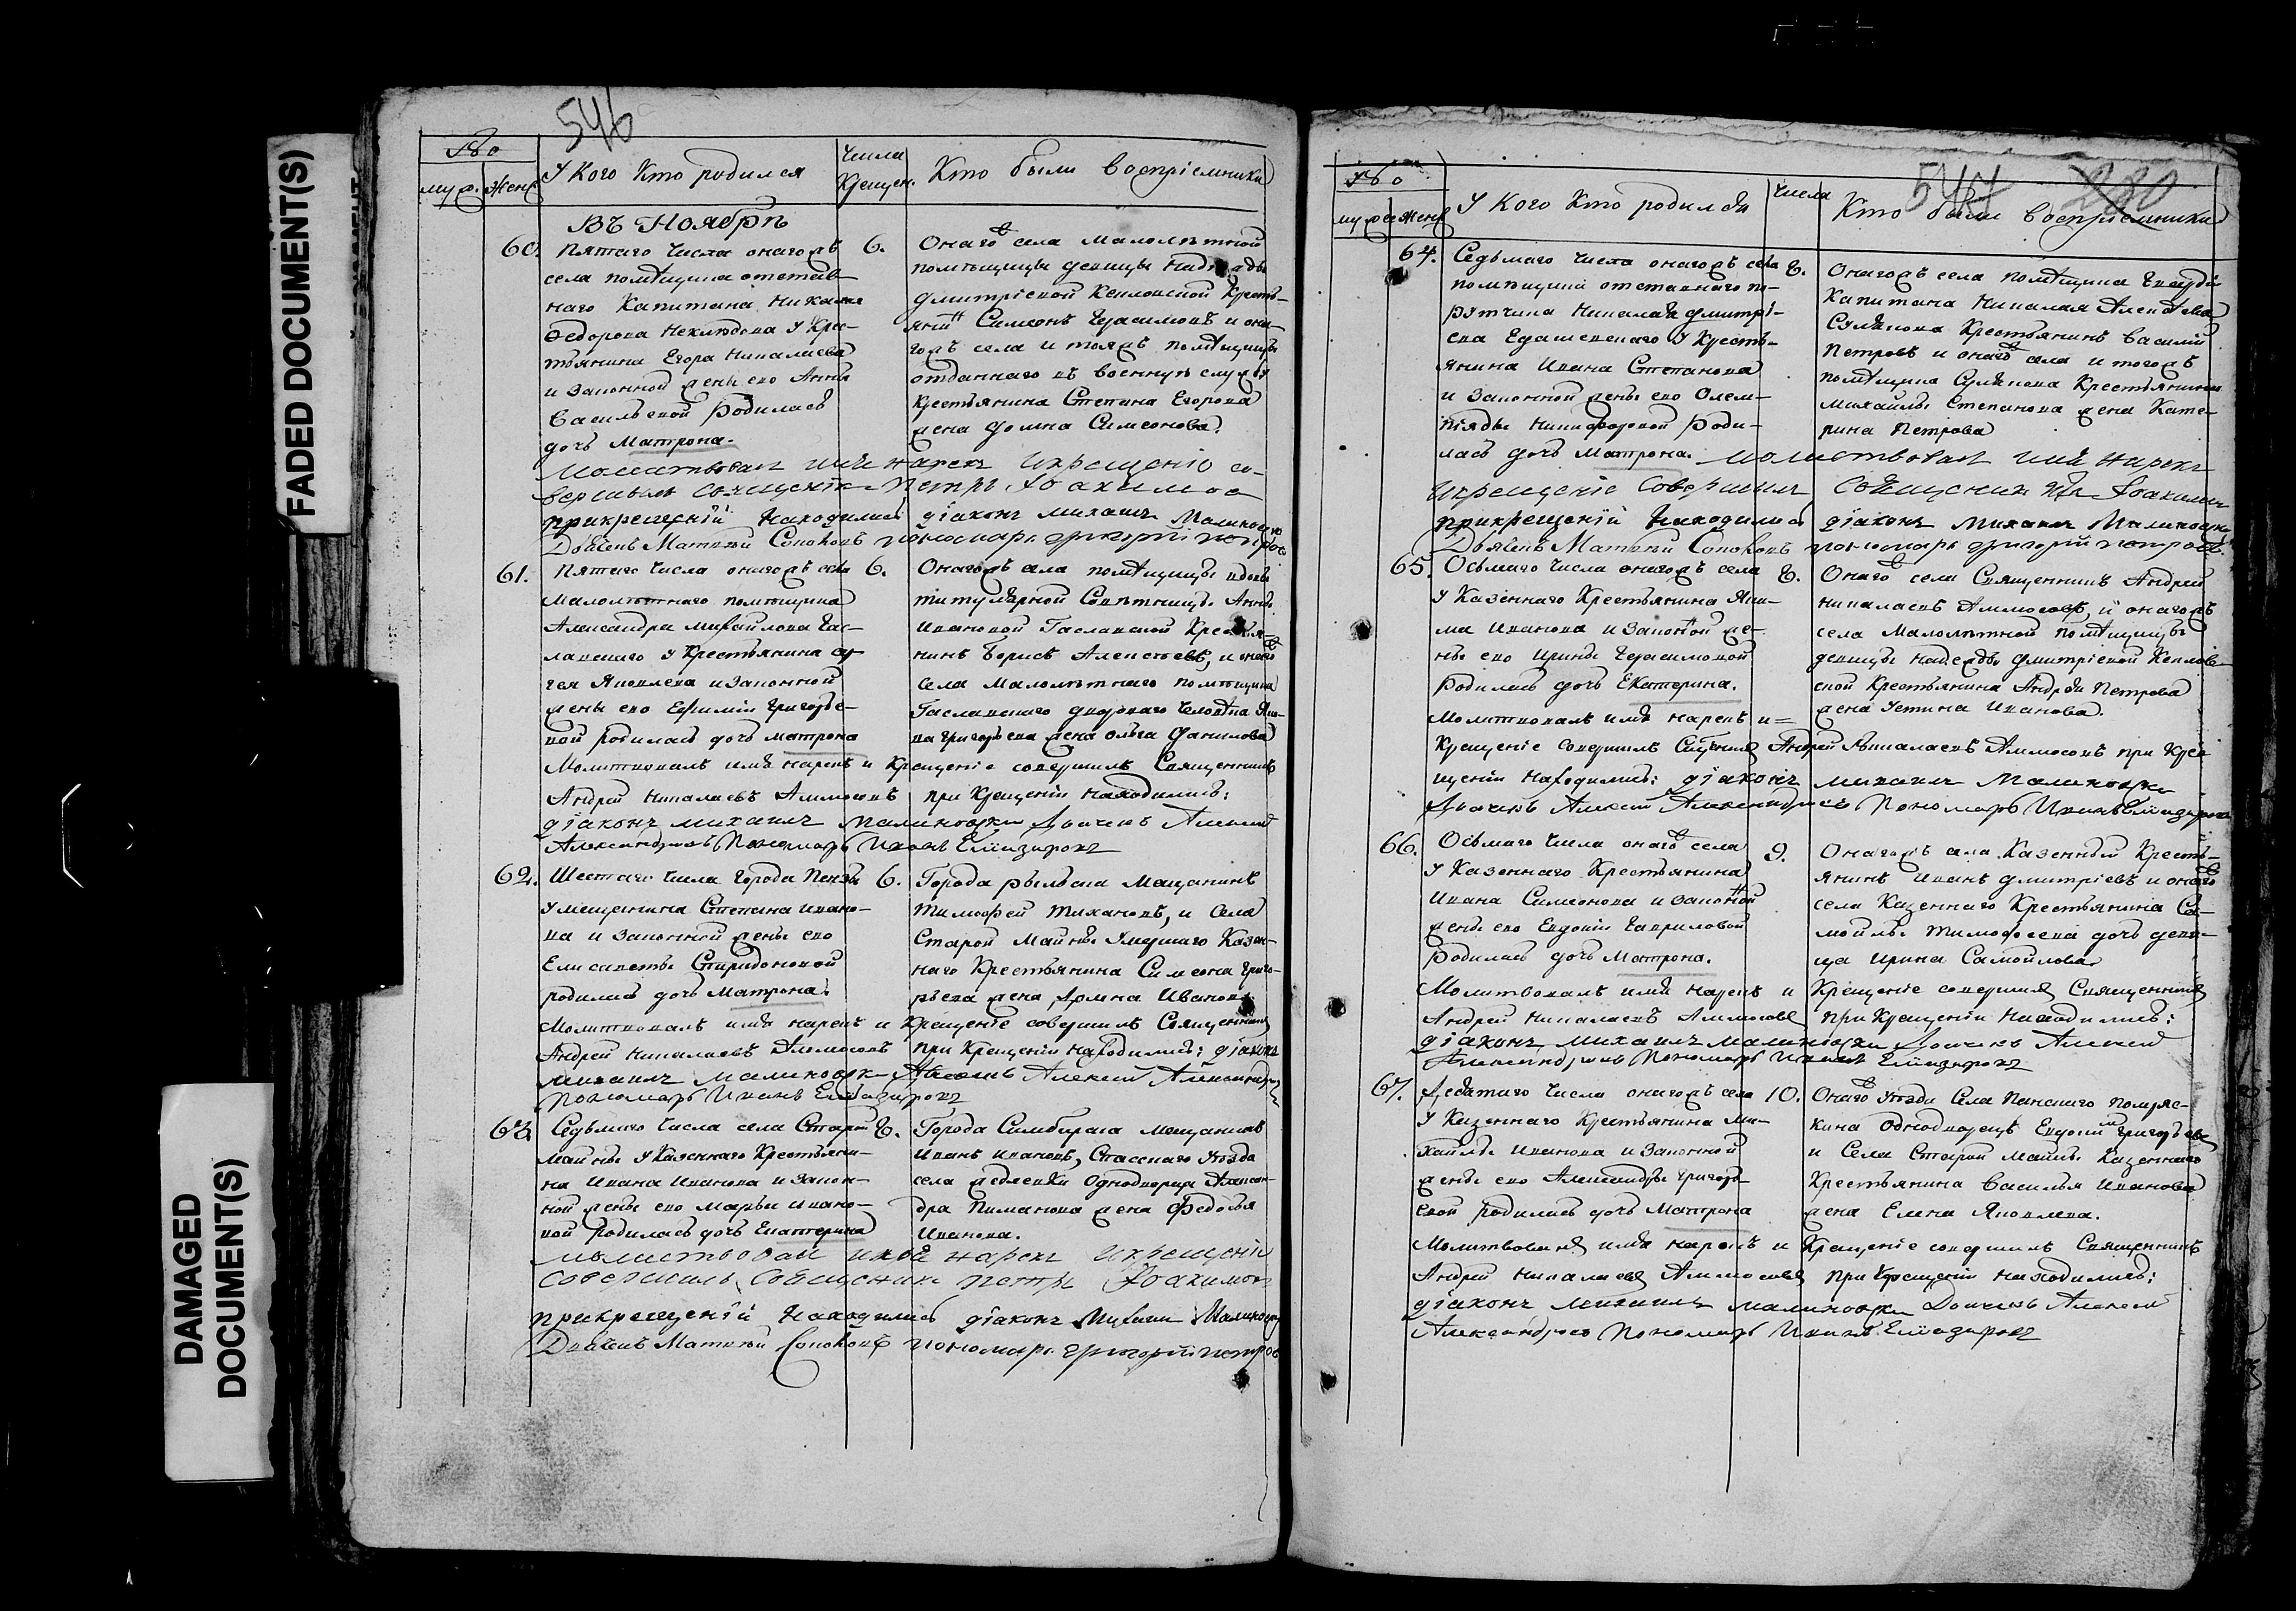 FADED DOCUMENT(S)
DAMAGED DOCUMENT(S)
546
муж. Женс
У Кого Кто родился
Числа Крещен.
Кто были воспріемники
Въ Ноябрѣ
60. Пятаго Числа онагожъ
села помѣщика отстав-
наго Капитана Николая
Федорова Неклюдова у Крес-
тьянина Егора Николаева
и Законной жены его Анны
Васильевой родилась
дочь Матрона.
6.
Онаго села Малолѣтной
помѣщицы девицы Надежды
Дмитріевой Крестъ-
янинъ Симеонъ Герасимовъ и она-
гожъ села и тояжъ помѣщицы
отданнаго въ военную службу
крестьянина Степана Егорова
жена Домна Симеонова.
Молитвовалъ имя нарекъ икрещеніе со-
вершилъ священникъ Петръ Іоакимов
прикрещеній находились діаконъ михаилъ Малиновски
Дьячекъ Матвей пономарь григорій петровъ
61. Пятаго Числа онагожъ села
Малолѣтнаго помѣщика
Александра Михайлова Гас-
лавскаго у Крестьянина Сер-
гея Яковлева и Законной
жены его Ефиміи Григорье-
вой родилась дочь Матрона
6.
Онагожъ села помѣщицы вдовы
титулярной Совѣтницы Анны
Ивановой Гаславской Крестья-
нинъ Борисъ Алексѣевъ, и онаго
села Малолѣтнаго помѣщика
Гаславскаго двороваго Человѣка Яко-
ва Григорьева жена Ольга Данилова
Молитвовалъ имя нарекъ и Крещеніе совершилъ Священникъ
Андрей Николаевъ Аммосовъ при Крещеніи находились:
діаконъ михаилъ малиновски Дьячекъ Алексей
Александровъ Пономарь Иванъ Елпидифоровъ
62. Шестаго Числа Города Пензы
у мещанина Степана Ивано-
ва и Законной жены его
Елисаветы Спиридоновой
родилась дочь Матрона.
6.
Города Рыльска Мещанинъ
Тимофей Тихановъ, и Села
Старой Майны Умершаго Казен-
наго Крестьянина Симеона Григо-
рьева жена Домна Иванова
Молитвовалъ имя нарекъ и Крещеніе совершилъ Священникъ
Андрей Николаевъ Аммосовъ при Крещеніи находились: діаконъ
михаилъ малиновски Дьячекъ Алексей Александровъ
Пономарь Иванъ Елпидифоровъ
63. Седьмаго Числа села Старой
Майны у Казеннаго Крестьяни-
на Ивана Иванова и Закон-
ной жены его Марьи Ивано-
вой родилась дочь Екатерина
8.
Города Симбирска мещанинъ
Иванъ Ивановъ, Спасскаго уѣзда
села Однодворца Алексан-
дра жена Федосья
Иванова.
молитвовал имя нарекъ икрещеніе
совершилъ священникъ петръ Іоакимов
прикрещеній находились діаконъ Михаилъ Малиновски
Дьячекъ Матвей пономарь григорій петров
547 280
муж. женс
У Кого Кто родился
Числа
Кто были воспріемники
64. Седьмаго Числа онагожъ села
помѣщика отставнаго по-
ручика Николая Дмитрі-
ева у Кресть-
янина Ивана Степанова
и Законной жены его Олем-
піяды Никифоровой роди-
лась дочь Матрона.
8.
Онагожъ села помѣщика Гвардіи
Капитана Николая Алексѣева
Крестьянинъ Василій
Петровъ и онаго села и тогожъ
помѣщика Крестьянина
Михайлы Степанова жена Кате-
рина Петрова
молитвовал имя нарекъ
икрещеніе совершилъ священник Іоакимов
прикрещеній находились діаконъ михаилъ Малиновски
Дьячекъ Матвей пономарь григорій петров
65. Осьмаго Числа онагожъ села
у Казеннаго Крестьянина Яки-
ма Иванова и Законной же-
ны его Ирины Герасимовой
родилась дочь Екатерина.
8.
Онаго села Священникъ Андрей
Николаевъ Аммосовъ, и онагожъ
села Малолѣтной помѣщицы
девицы Надежды Дмитріевой
Крестьянина Андрея Петрова
жена Устина Иванова.
Молитвовалъ имя нарекъ и=
Крещеніе совершилъ Священникъ Андрей Николаевъ Аммосовъ при Кре-
щеніи находились: діаконъ михаилъ малиновски
Дьячекъ Алексей Александровъ Пономарь Иванъ Елпидифоровъ
66. Осьмаго Числа онаго села
у Казеннаго Крестьянина
Ивана Симеонова и Законной
жены его Евдокіи Гавриловой
родилась дочь Матрона.
9.
Онагожъ села Казенный Кресть-
янинъ Иванъ Дмитріевъ и онаго
села Казеннаго Крестьянина Са-
мойлы Тимофеева дочь деви-
ца Ирина Самойлова
Молитвовалъ имя нарекъ и Крещеніе совершилъ Священникъ
Андрей Николаевъ Аммосовъ при Крещеніи находились:
діаконъ михаилъ малиновски Дьячекъ Алексей
Александровъ Пономарь Иванъ Елпидифоровъ
67. Девятаго Числа онагожъ села
у Казеннаго Крестьянина Ми-
хайлы Иванова и Законной
жены его Александры Григорь-
евой родилась дочь Матрона
10.
Онаго уѣзда Села
Однодворецъ Евдокимъ Григорьевъ
и Села Старой Майны Казеннаго
Крестьянина Василья Иванова
жена Елена Яковлева.
Молитвовалъ имя нарекъ и Крещеніе совершилъ Священникъ
Андрей Николаевъ Аммосовъ при Крещеніи находились:
діаконъ михаилъ малиновски Дьячекъ Алексей
Александровъ Пономарь Иванъ Елпидифоровъ